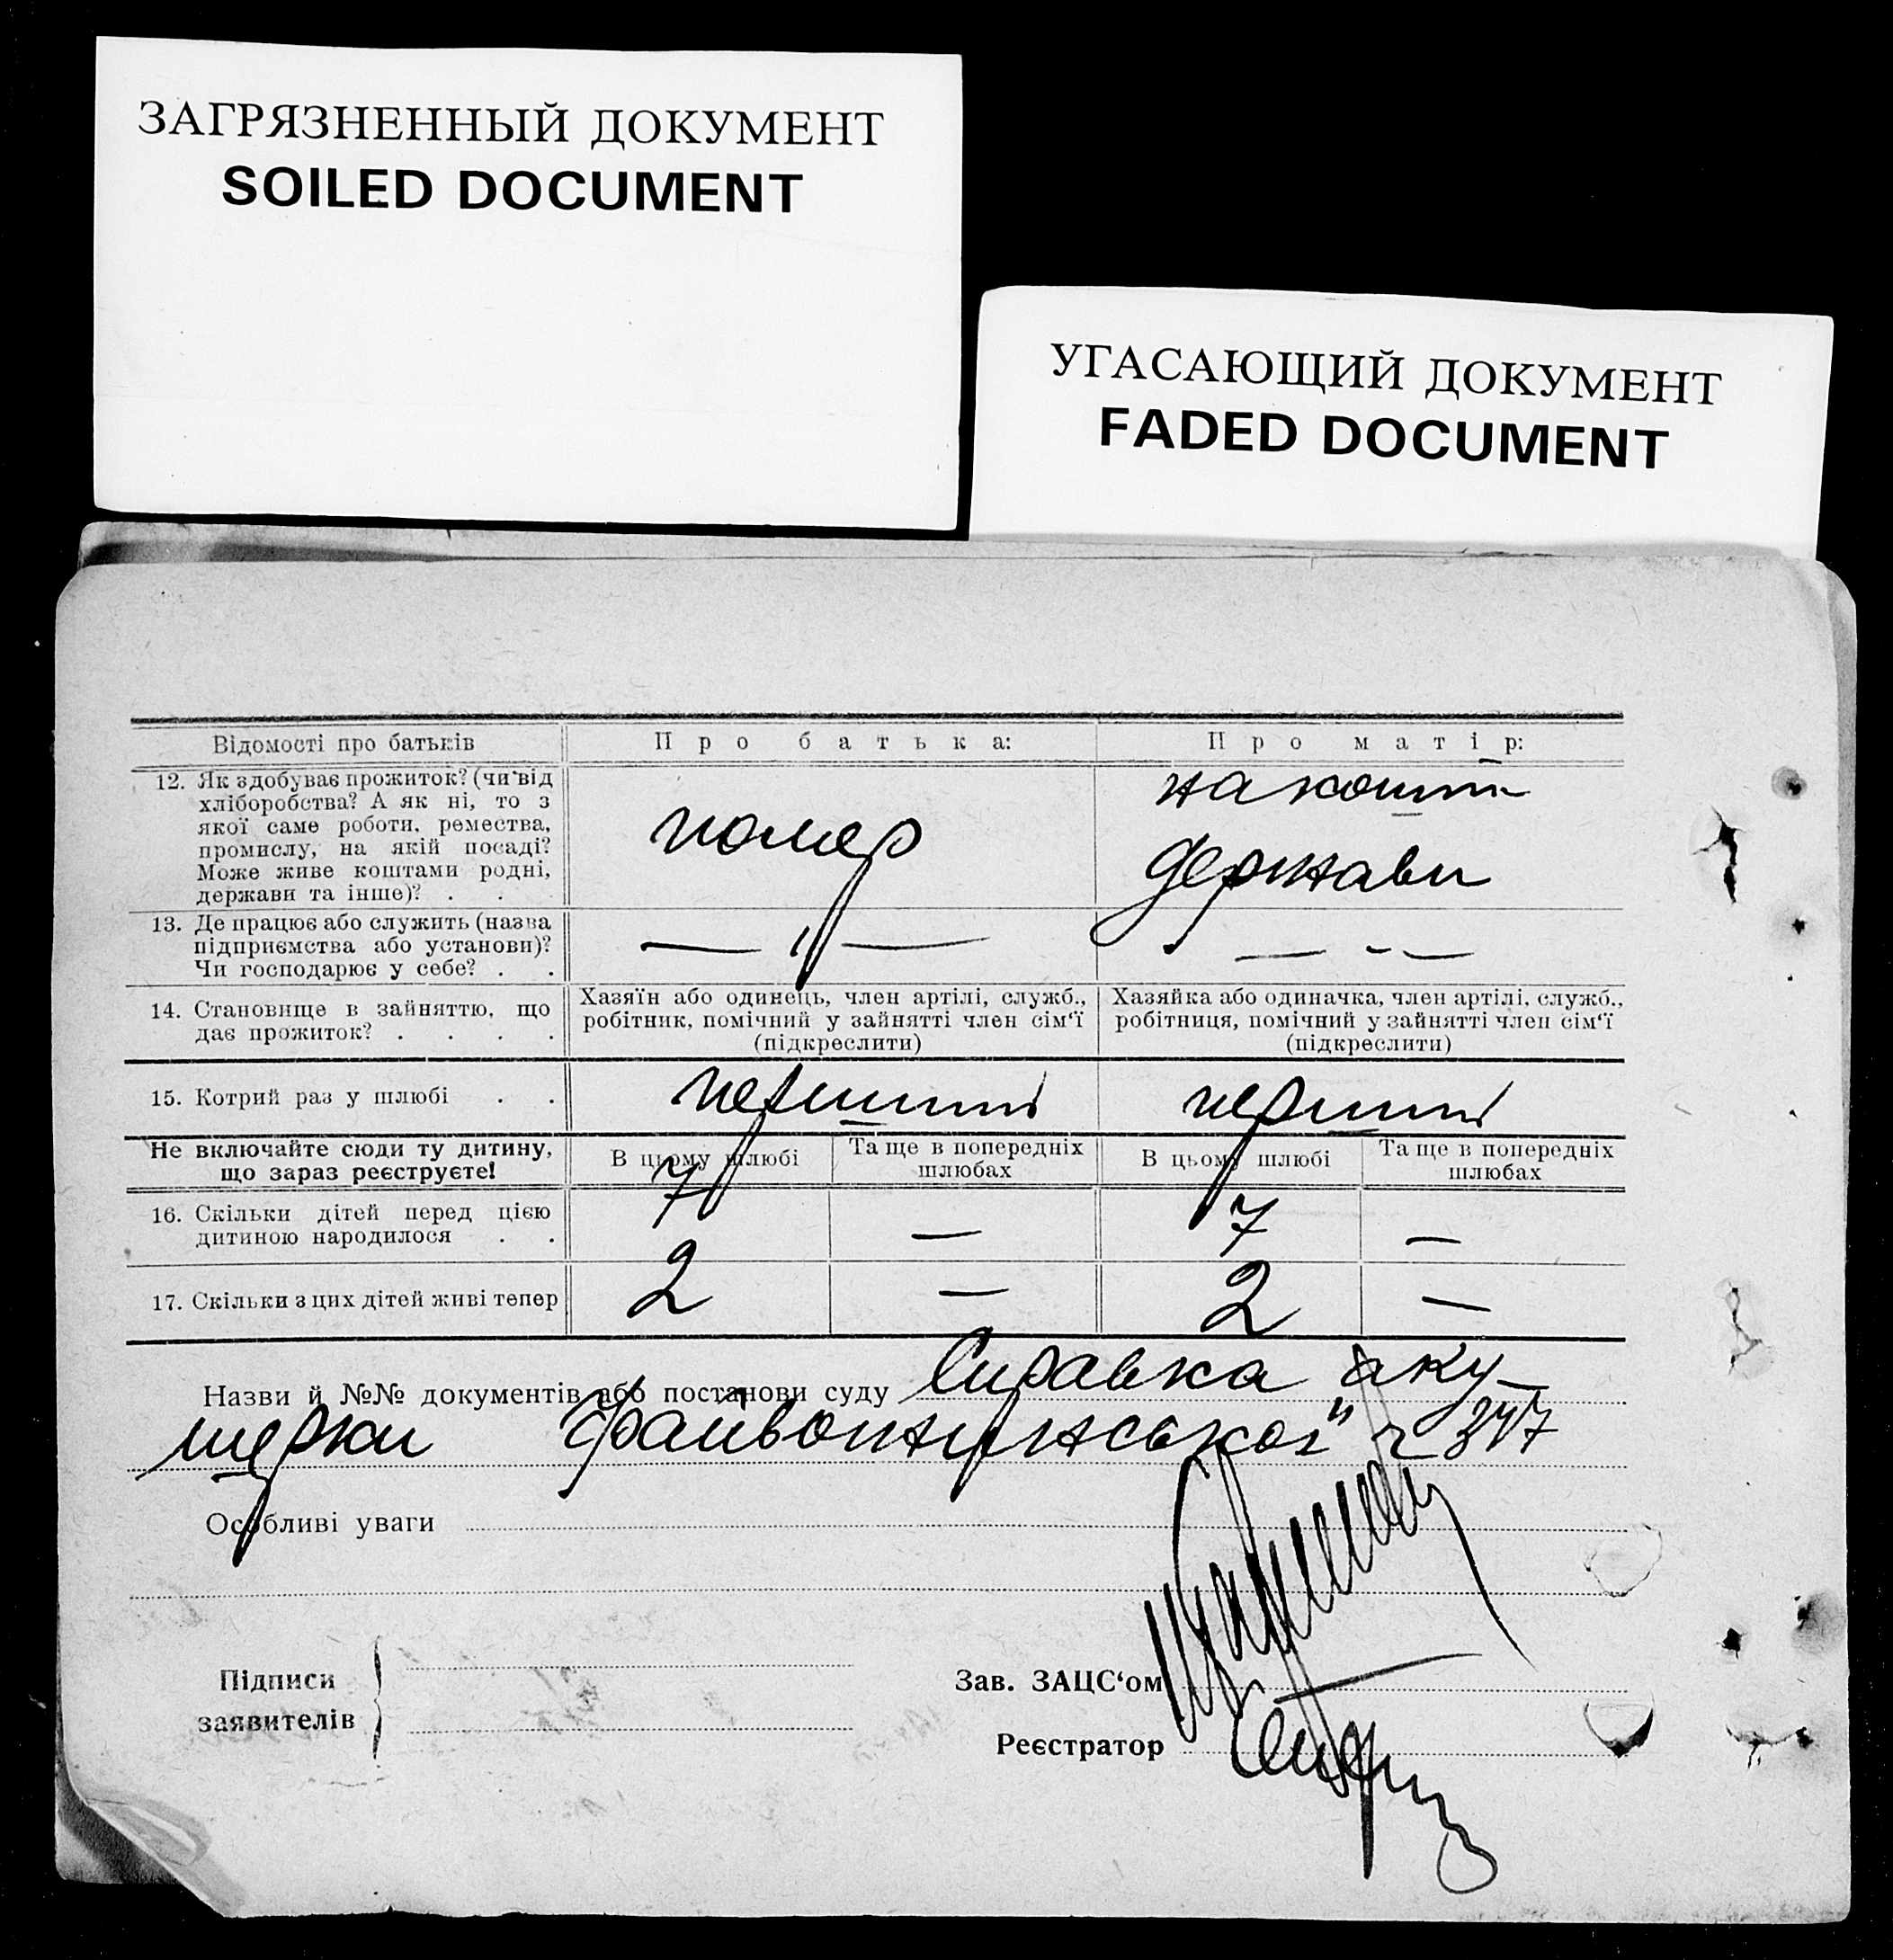 ЗАГРЯЗНЕННЫЙ ДОКУМЕНТ
SOILED DOCUMENT
УГАСАЮЩИЙ ДОКУМЕНТ
FADED DOCUMENT
Відомості про батьків
Про батька:
Про матір:
12. Як здобуває прожиток? (чи від
хліборобства? А як ні, то з
якої саме роботи, ремества,
промислу, на якій посаді?
Може живе коштами родні,
держави та інше)? . .
помер
на кошти
держави
13. Де працює або служить (назва
підприємства або установи)?
Чи господарює у себе? . .
— „ —
— - —
14. Становище в зайняттю, що
дає прожиток? . . . .
Хазяїн або одинець, член артілі, служб.,
робітник, помічний у зайнятті член сім‘ї
(підкреслити)
Хазяйка або одиначка, член артілі, служб.,
робітниця, помічний у зайнятті член сім‘ї
(підкреслити)
15. Котрий раз у шлюбі . .
перший
перший
Не включайте сюди ту дитину,
що зараз реєструєте!
В цьому шлюбі
Та ще в попередніх
шлюбах
В цьому шлюбі
Та ще в попередніх
шлюбах
16. Скільки дітей перед цією
дитиною народилося . .
7
—
7
—
17. Скільки з цих дітей живі тепер
2
—
2
—
Назви й №№ документів або постанови суду Справка аку-
шерки
347
Особливі уваги
Підписи
заявителів
Зав. ЗАЦС‘ом
Реєстратор